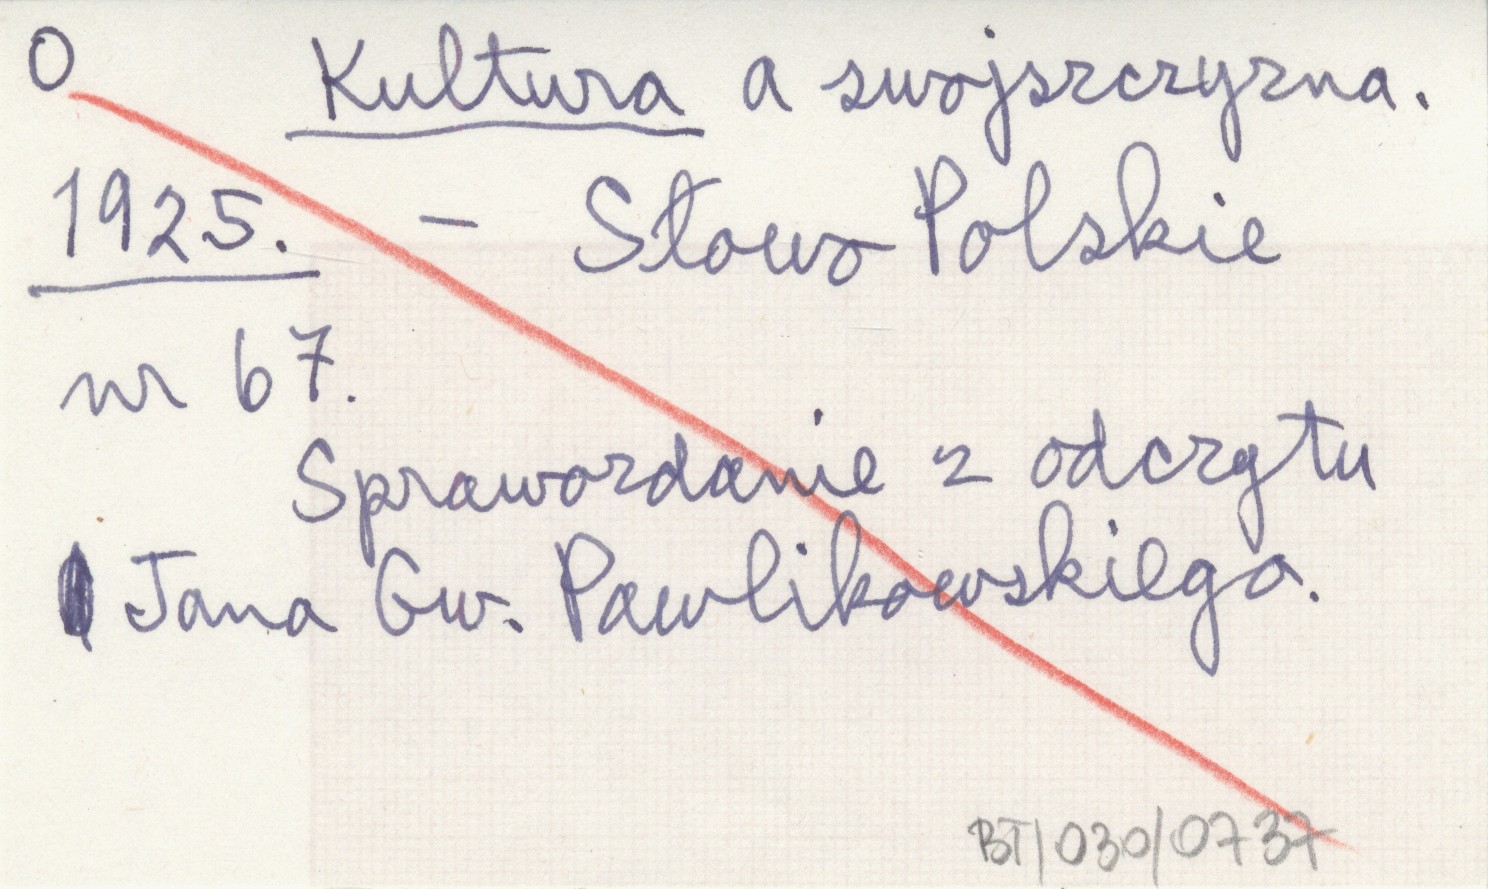 O Kultura a swojszczyzna.
1925. – Słowo Polskie
nr 67.
Sprawozdanie z odczytu
Jana Gw. Pawlikowskiego.
BT/030/0737